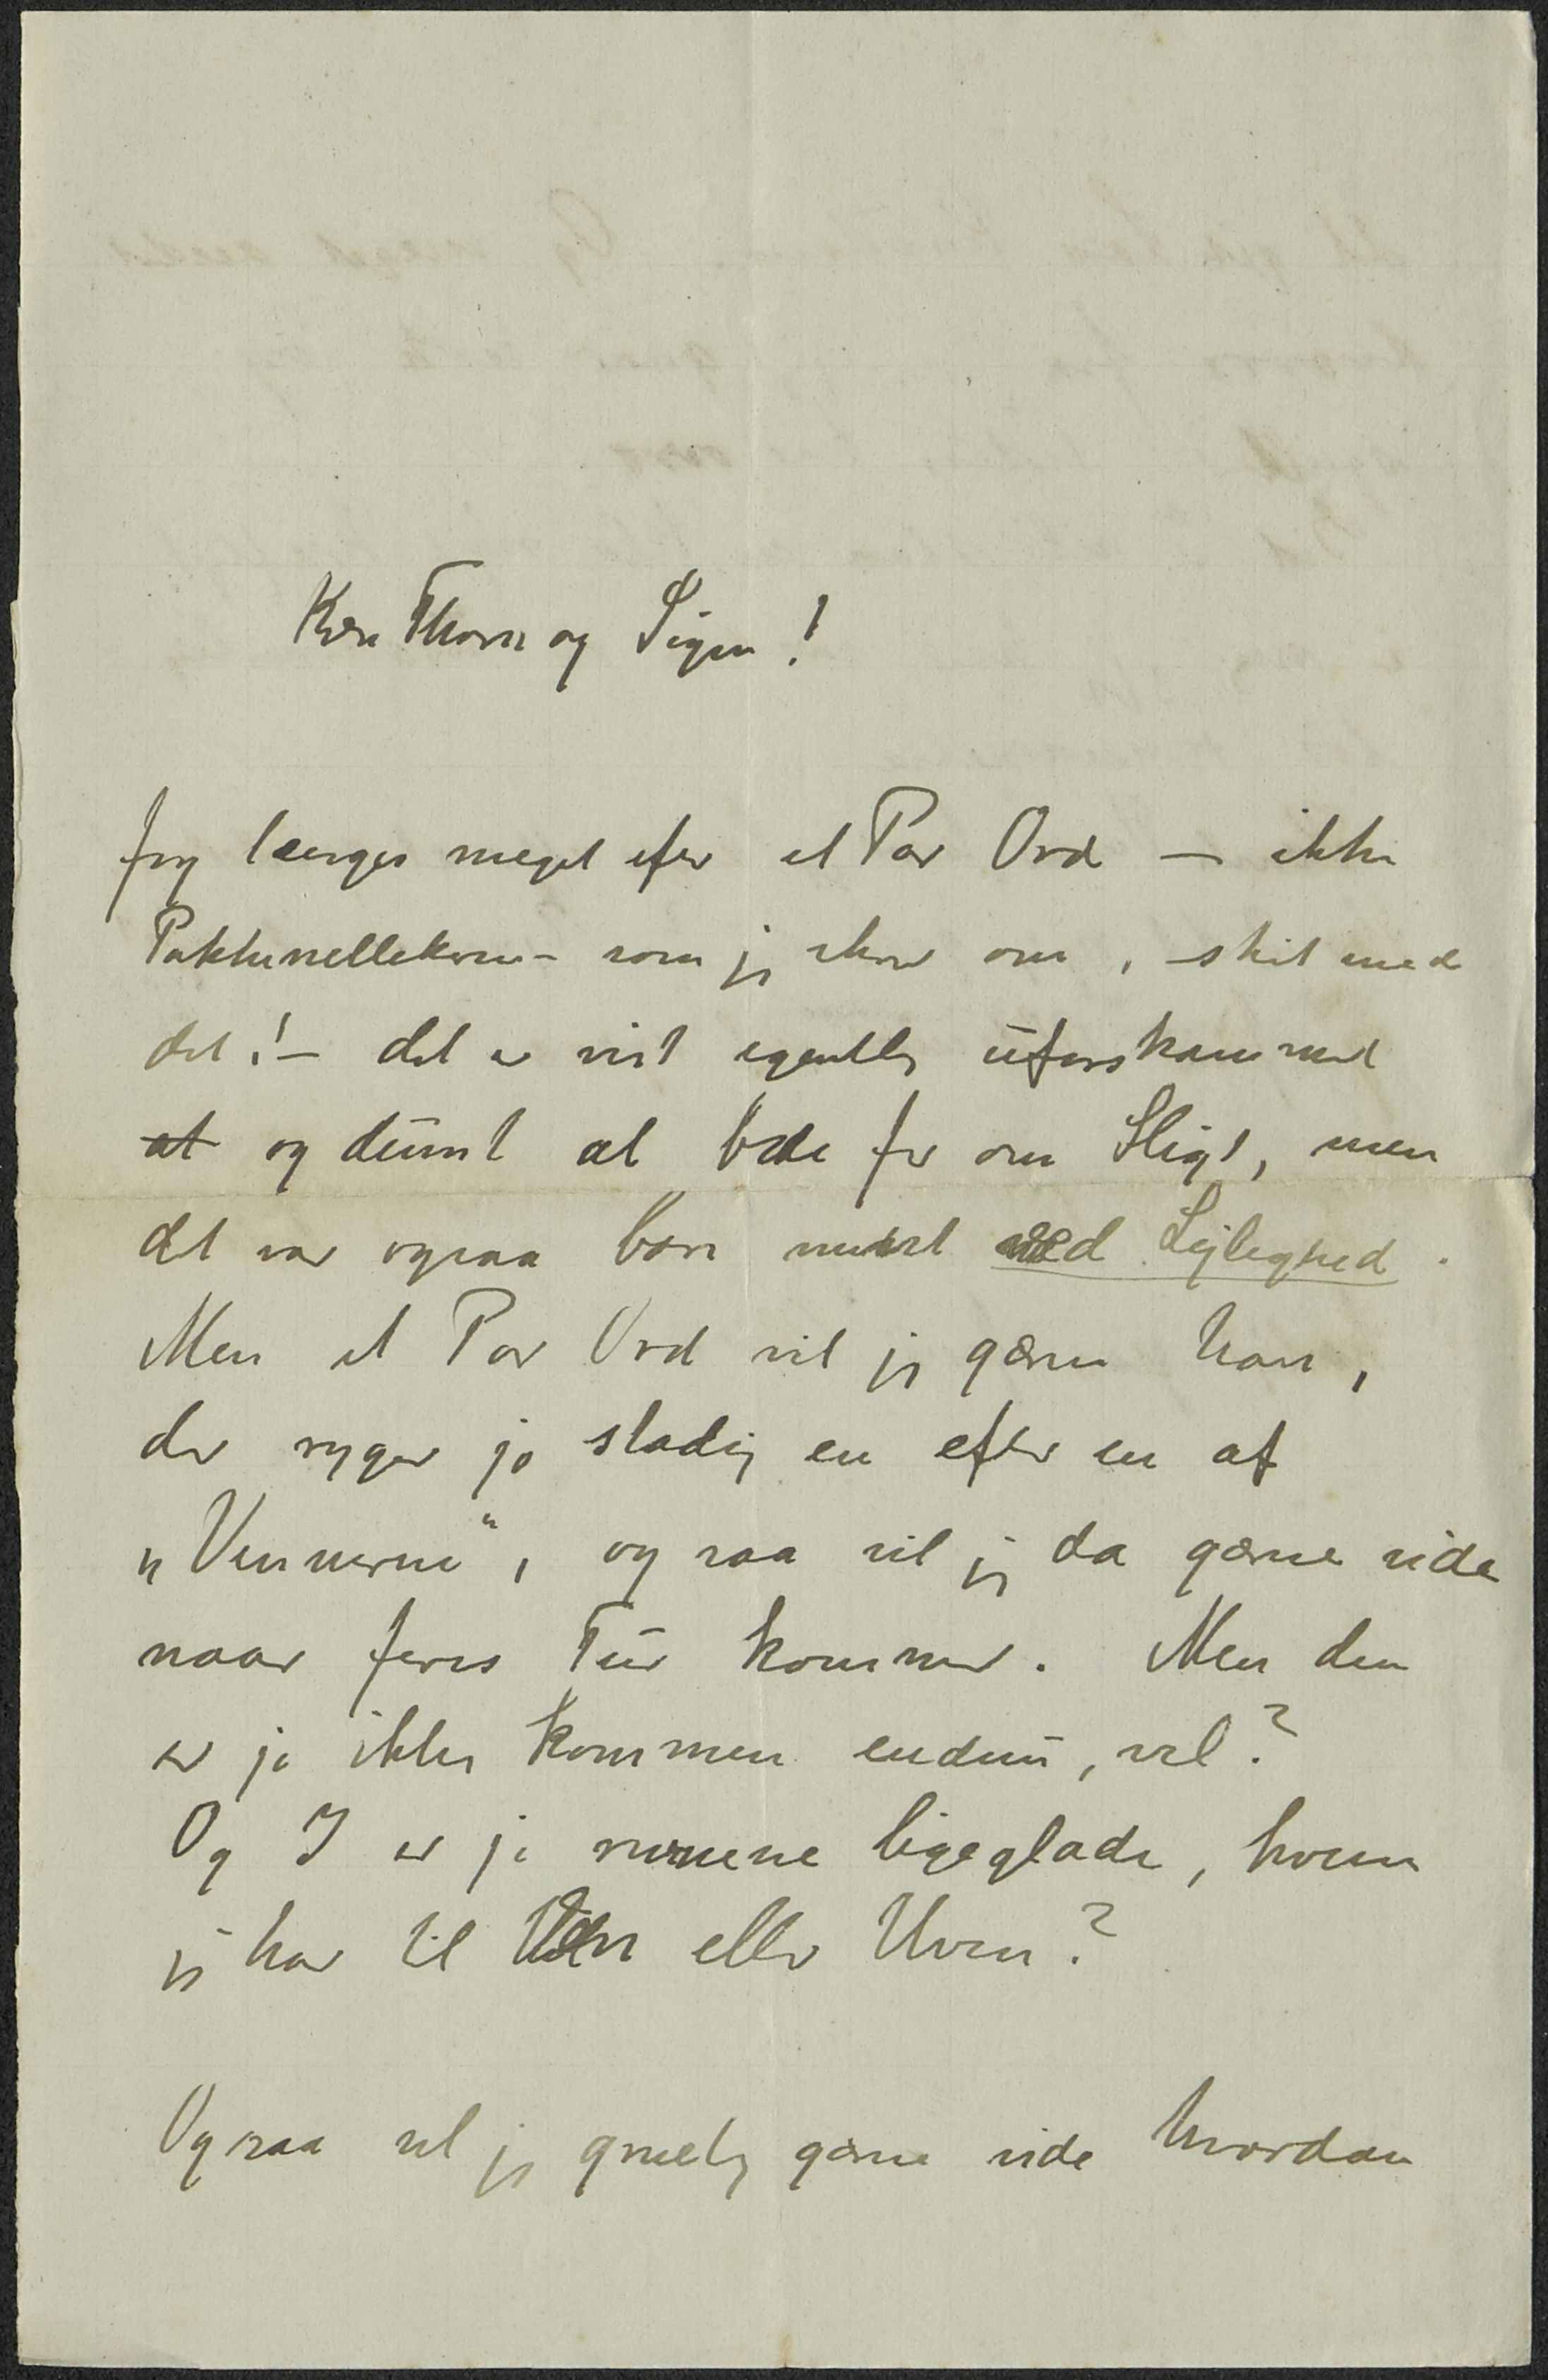 Kære Thorn og Signe!
Jeg længes meget efter et Par Ord — ikke
som jeg skrev om, skit med
det! — det er vist egentlig uforskammet
at og dumt at bede Jer om Sligt, men
det var ogsaa bare ment ved Lejlighed.
Men et Par Ord vil jeg gærne have,
der ryger jo stadig en efter en af
„Vennerne“, og saa vil jeg da gærne vide
naar Jeres Tur kommer. Men den
er jo ikke kommen endnu, vel?
Og I er jo ligeglade, hvem
jeg har til Ven eller Uven?
Og saa vil jeg gruelig gærne vide hvordan